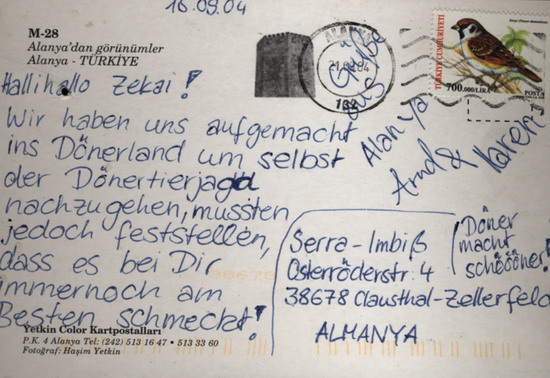 16.09.04
M-28
Alanya'dan görünümler
Alanya - TÜRKİYE
Hallihallo Zekai!
Wir haben uns aufgemacht
ins Dönerland um selbst
der Dönertierjagd
nachzugehen, mussten
jedoch feststellen,
dass es bei Dir
immernoch am
Besten schmeckt!
Grüße
aus
Alanya
Arnd &
Karen
ALANYA
132
TÜRKİYE CUMHURİYETİ
700.000/LIRA
POSTA
Serra-Imbiß
Osteröderstr. 4
38678 Clausthal-Zellerfeld
ALMANYA
Döner
macht
schööner!
Yetkin Color Kartpostalları
P.K. 4 Alanya Tel: (242) 513 16 47 • 513 33 60
Fotoğraf: Haşim Yetkin